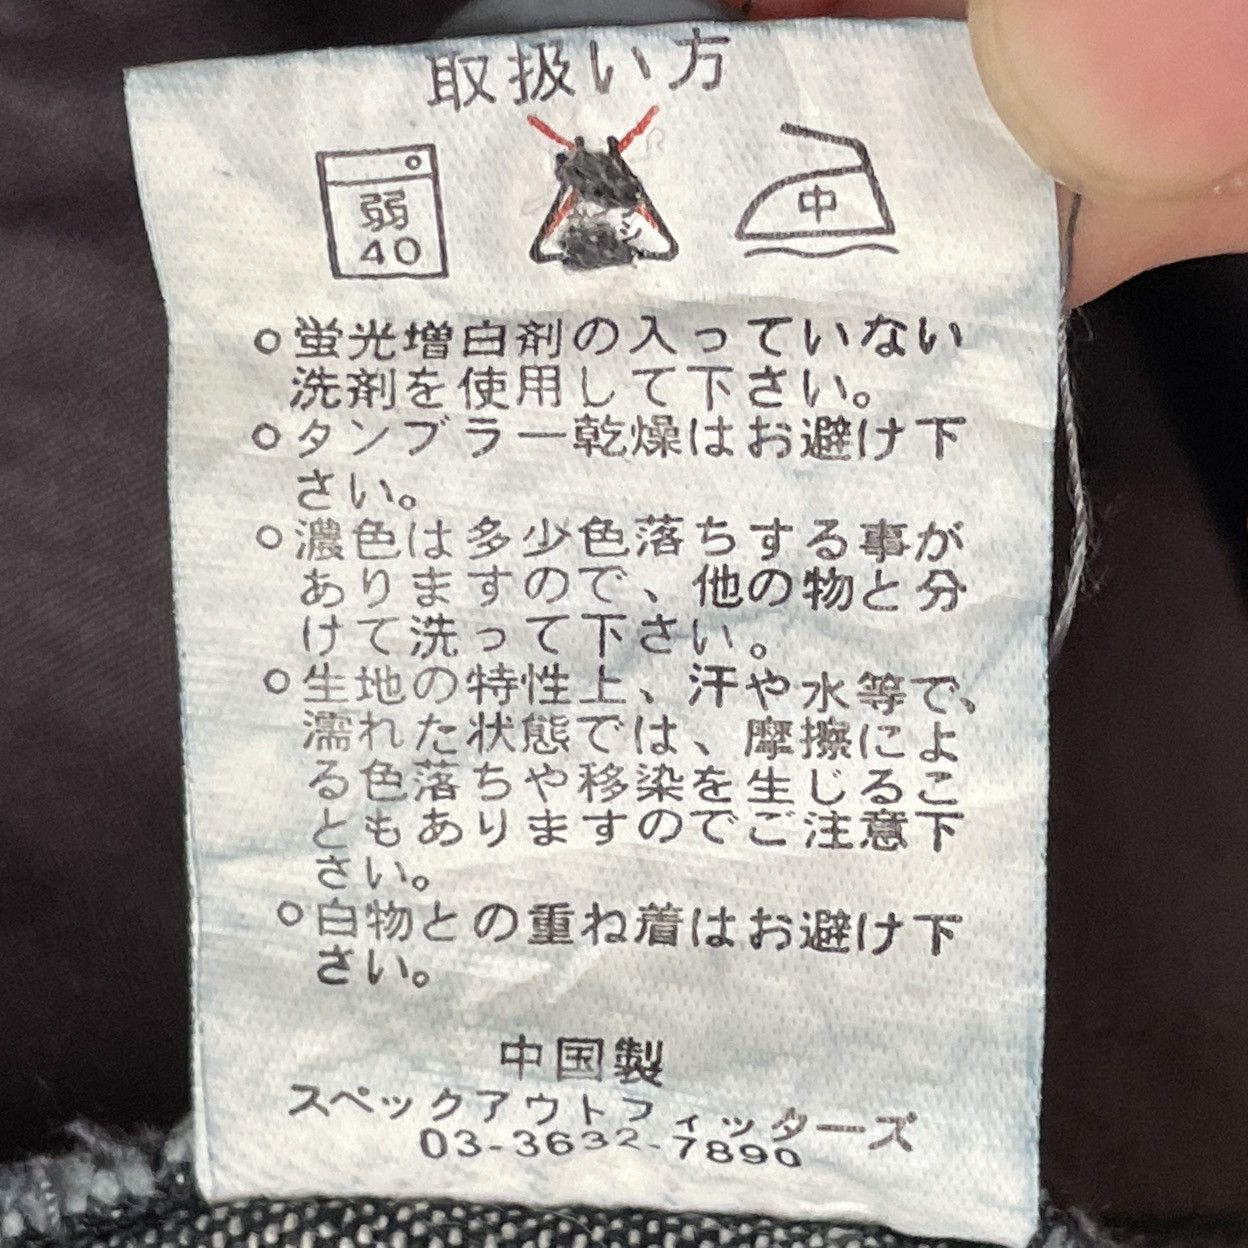 取扱い方
弱
40
中
○蛍光増白剤の入っていない
洗剤を使用して下さい。
○タンブラー乾燥はお避け下
さい。
○濃色は多少色落ちする事が
ありますので、他の物と分
けて洗って下さい。
○生地の特性上、汗や水等で、
濡れた状態では、摩擦によ
る色落ちや移染を生じるこ
ともありますのでご注意下
さい。
○白物との重ね着はお避け下
さい。
中国製
スペックアウトフィッターズ
03-3632-7890